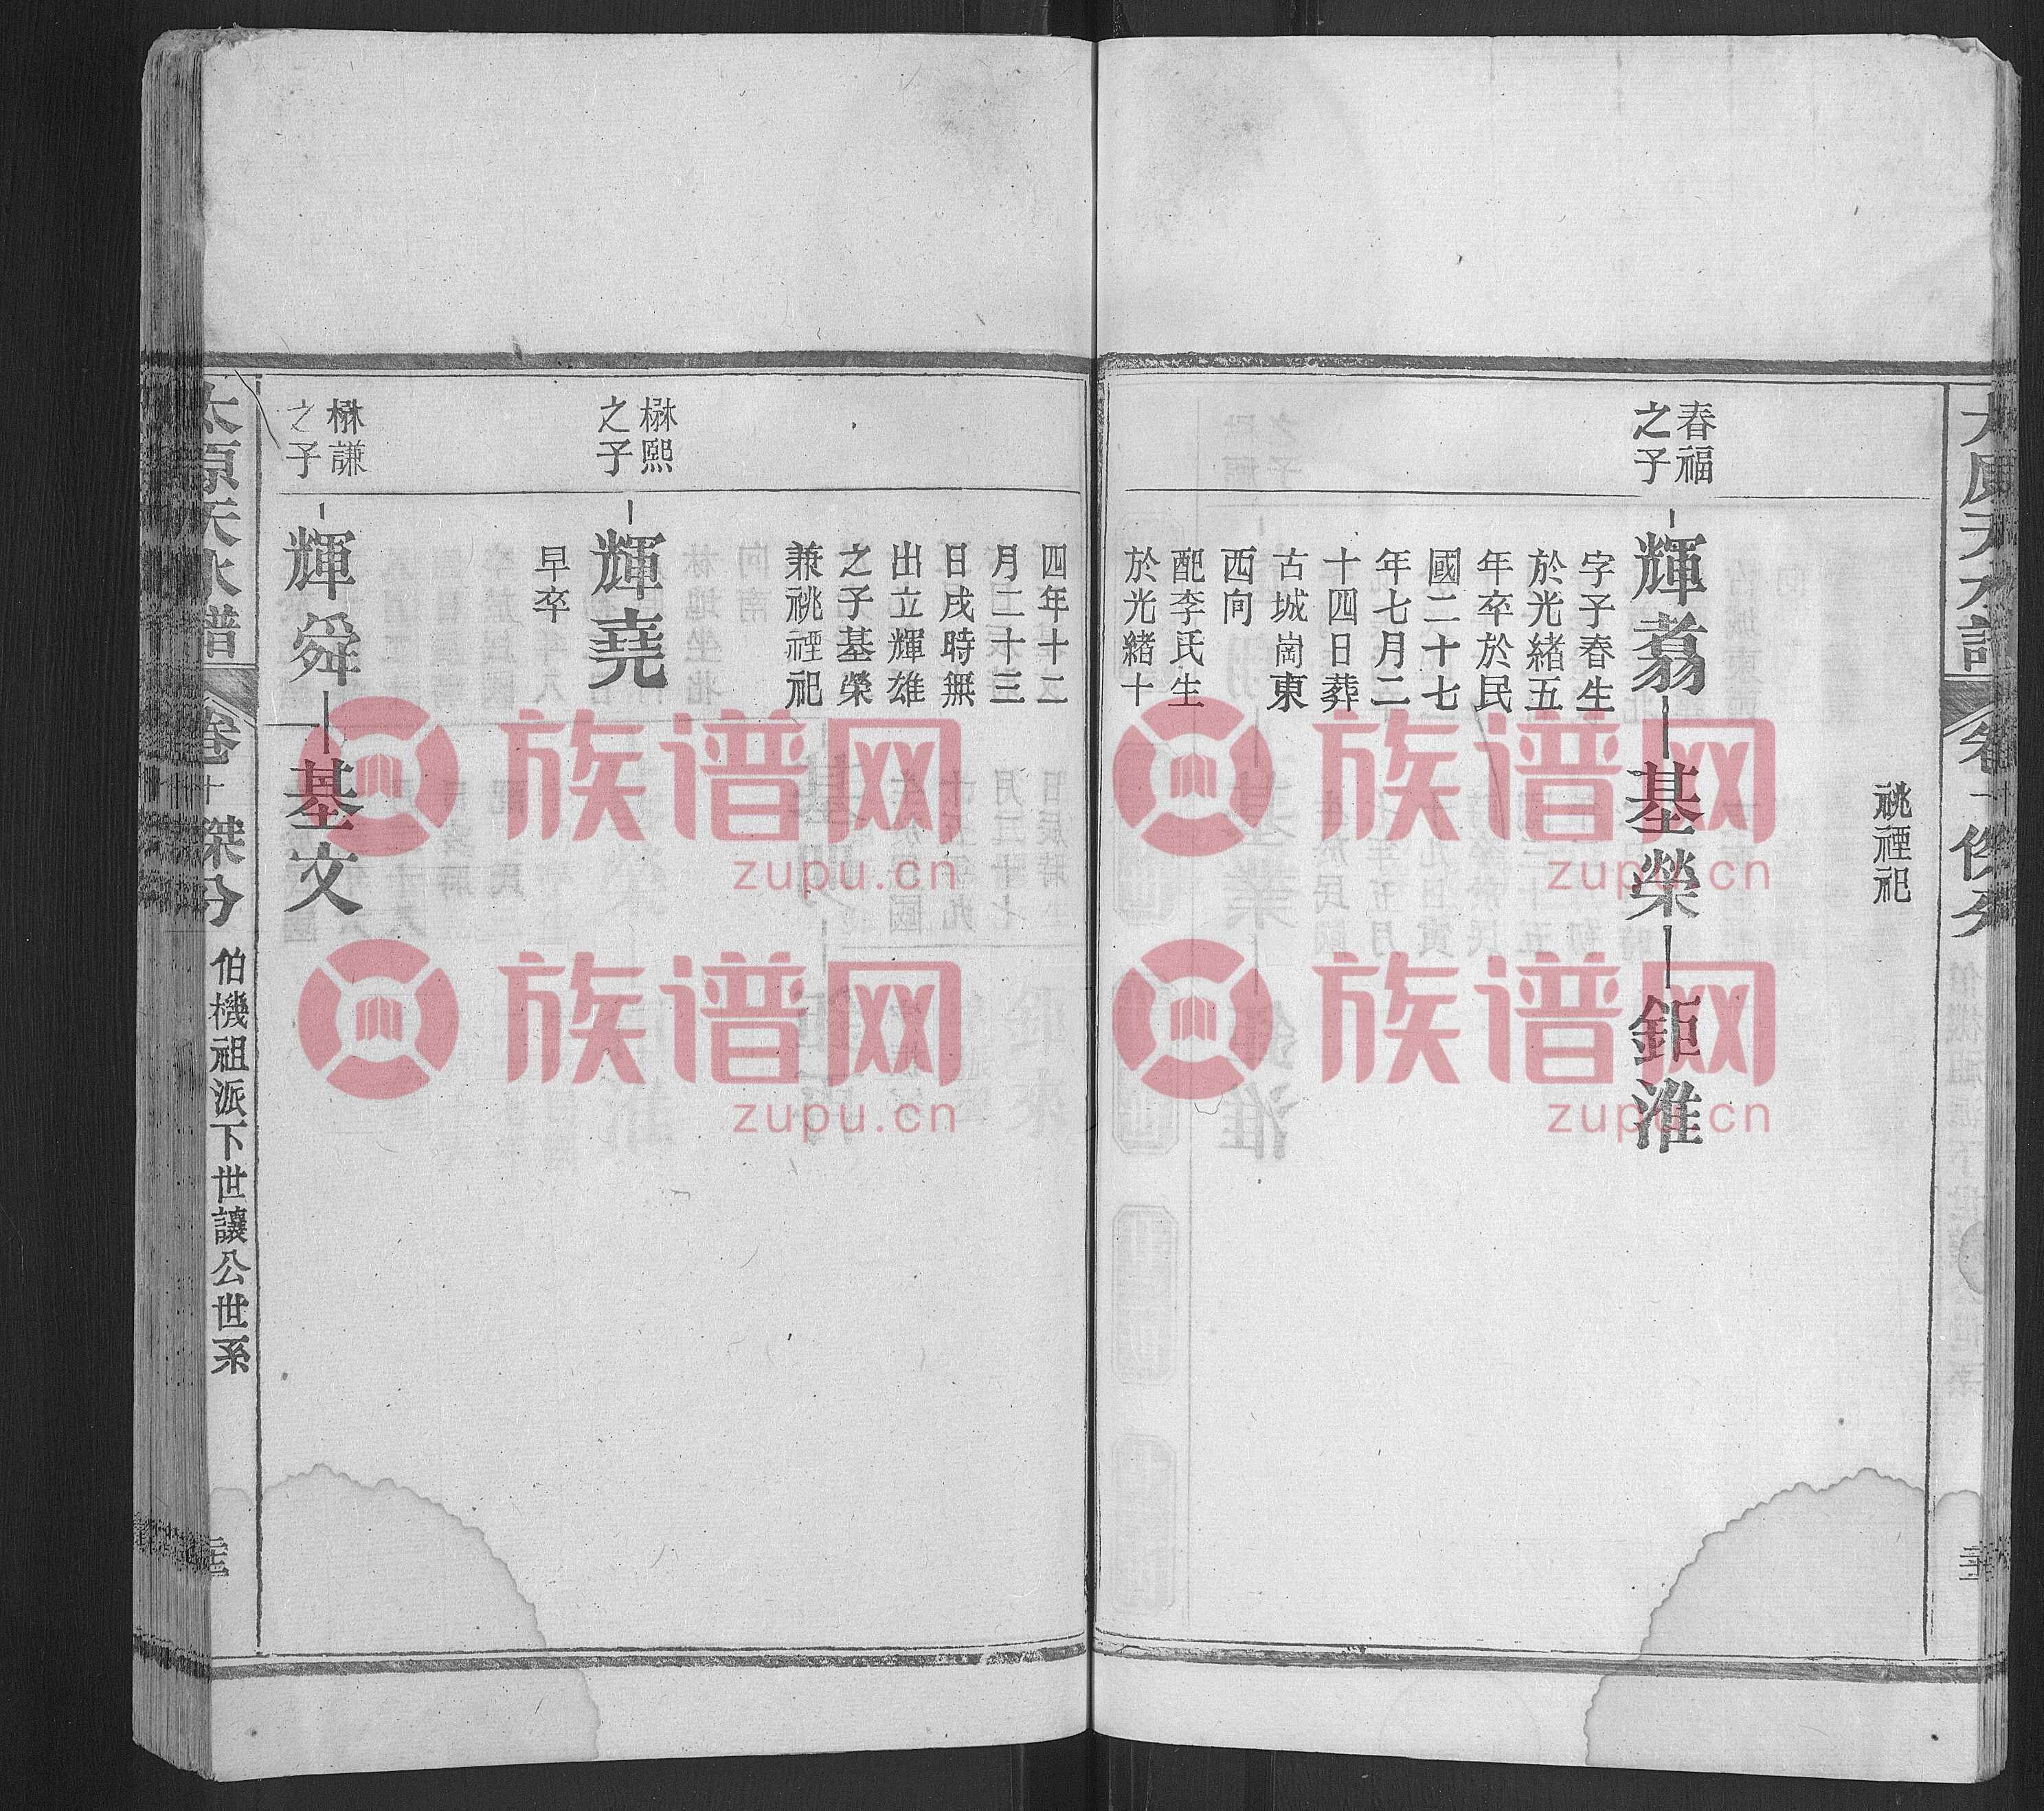 祧禋祀
春福
之子
輝翥
基榮
鉅淮
字子春生
於光緒五
年卒於民
國二十七
年七月二
十四日葬
古城崗東
西向
配李氏生
於光緒十
四年十二
月二十三
日戌時無
出立輝雄
之子基榮
兼祧禋祀
楙熙
之子
輝堯
早卒
楙謙
之子
輝舜
基文
太原天水譜
卷十
桀分
伯機祖派下世讓公世系
族谱网
zupu.cn
族谱网
zupu.cn
族谱网
zupu.cn
族谱网
zupu.cn